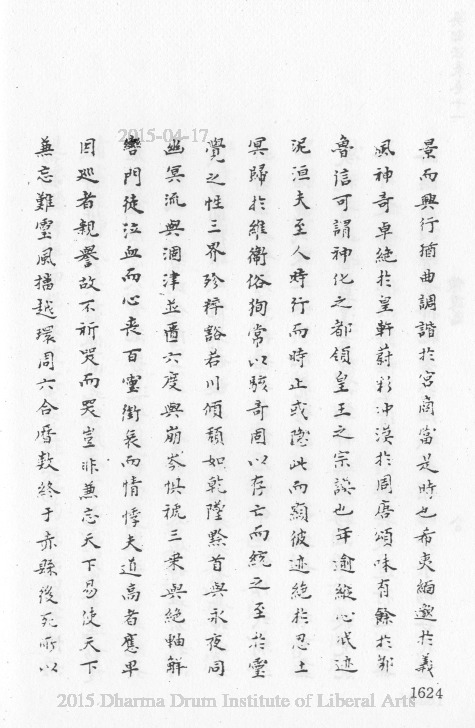 景而興行猶曲調諧於宮商當是時也希夷緬邈於羲
風神奇卓絕於皇軒蔚彩沖漠於周唐頌味有餘於鄒
魯信可謂神化之都領皇王之宗謨也年逾縱心泯迹
泥洹夫至人時行而時止或隱此而顯彼迹絕於忍土
冥歸於維衛俗徇常以駭奇固以存亡而統之至於靈
覺之性三界殄粹豁若川傾頹如乾墜黔首與永夜同
幽冥流與涸津並匱六度與崩岑俱褫三乘與絕軸解
轡門徒泣血而心喪百靈銜哀而情悸夫道高者應卑
因巡者親譽故不祈哭而哭豈非兼忘天下易使天下
兼忘難靈風播越環周六合曆數終于赤縣後死所以
2015-04-17
1624
2015 Dharma Drum Institute of Liberal Arts